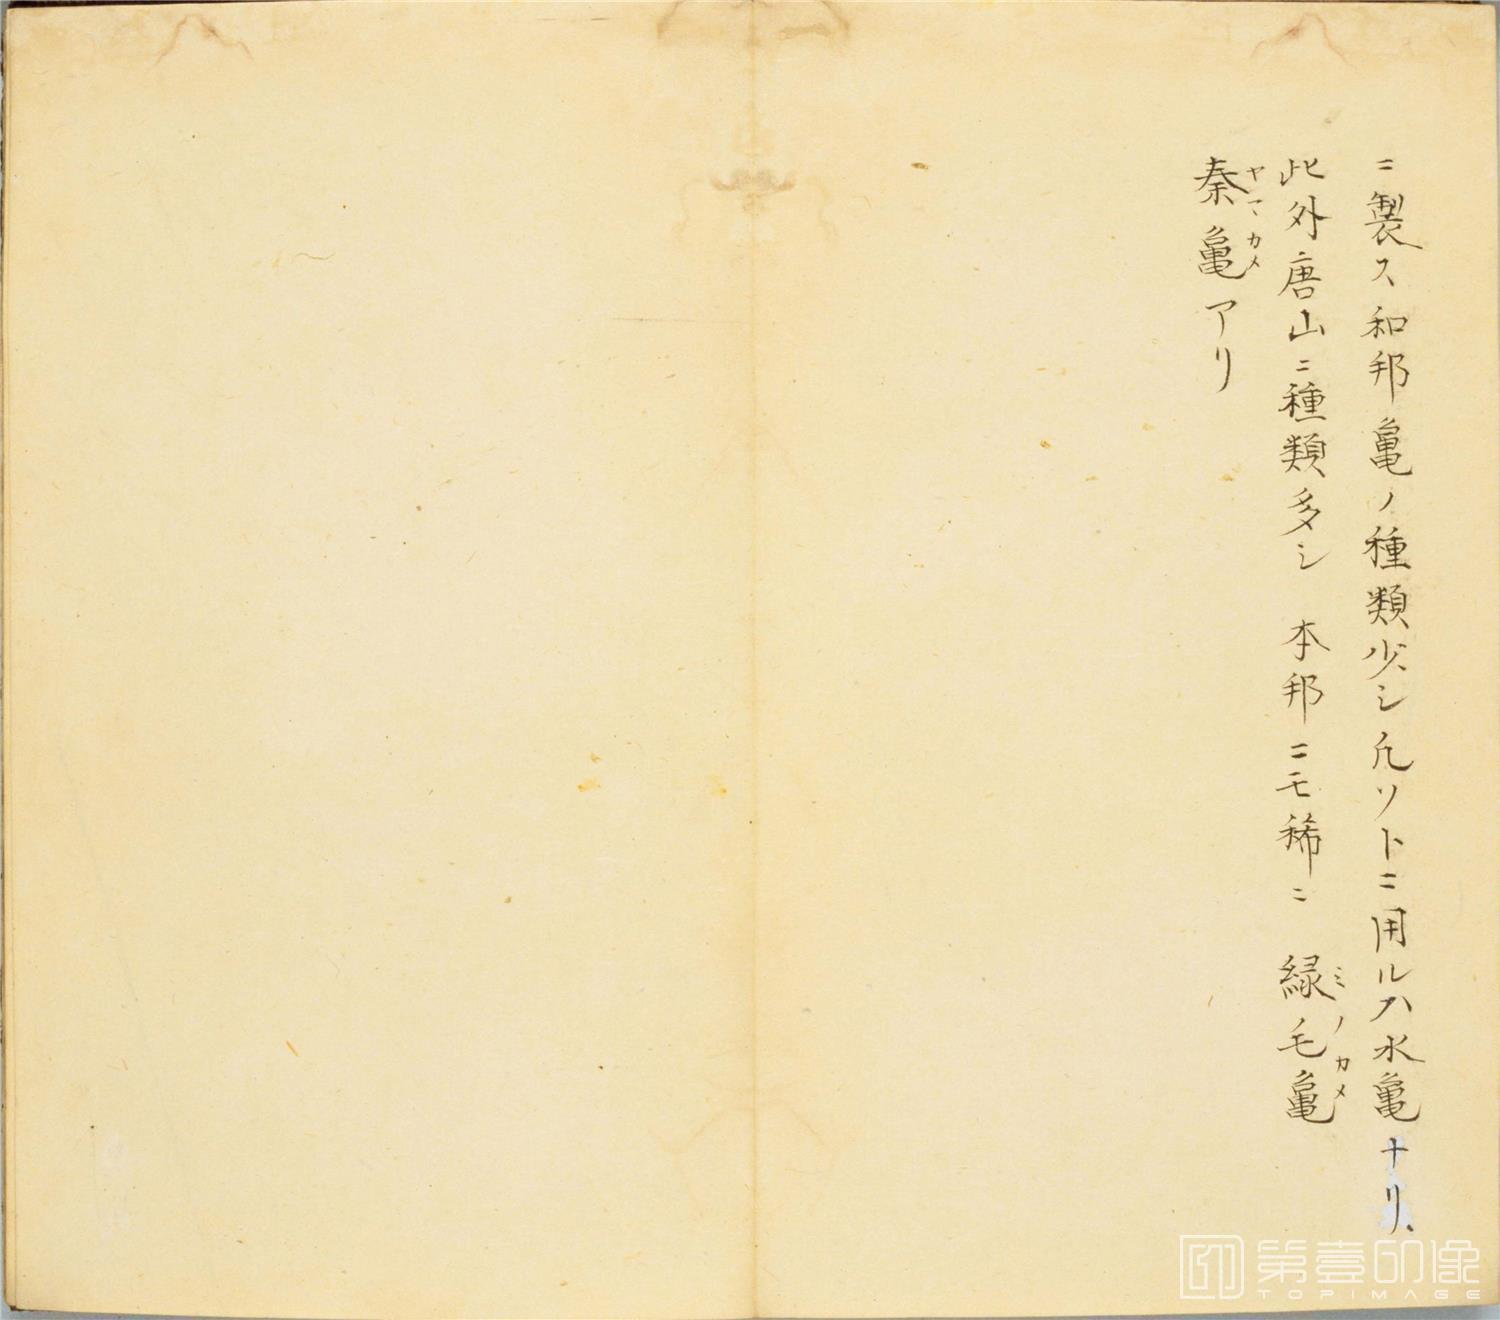 ニ製ス和邦亀ノ種類少シ凡ソトニ用ルハ水亀ナリ、
此外唐山ニ種類多シ 本邦ニモ稀ニ 緑毛亀
ミノカメ
秦亀アリ
ヤマカメ
第壹印像
TOPIMAGE